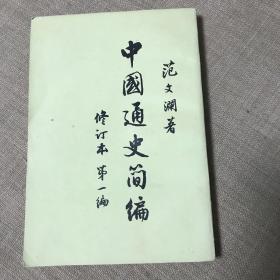 范文瀾著
中國通史简編
修订本 第一編